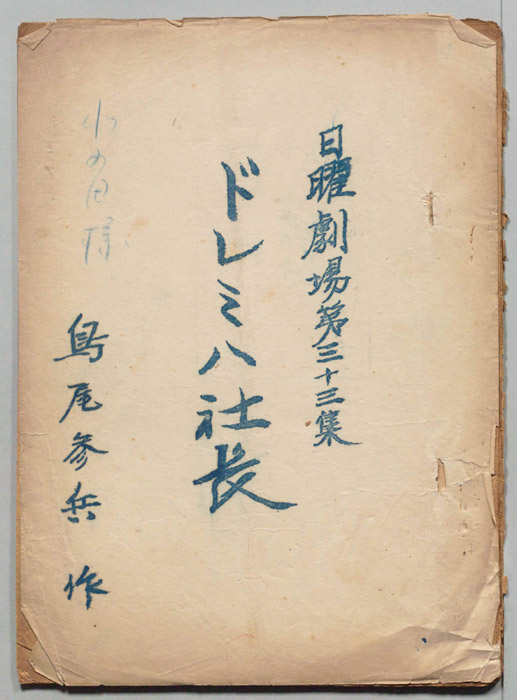 日曜劇場第三十三集
ドレミハ社長
鳥尾参兵 作